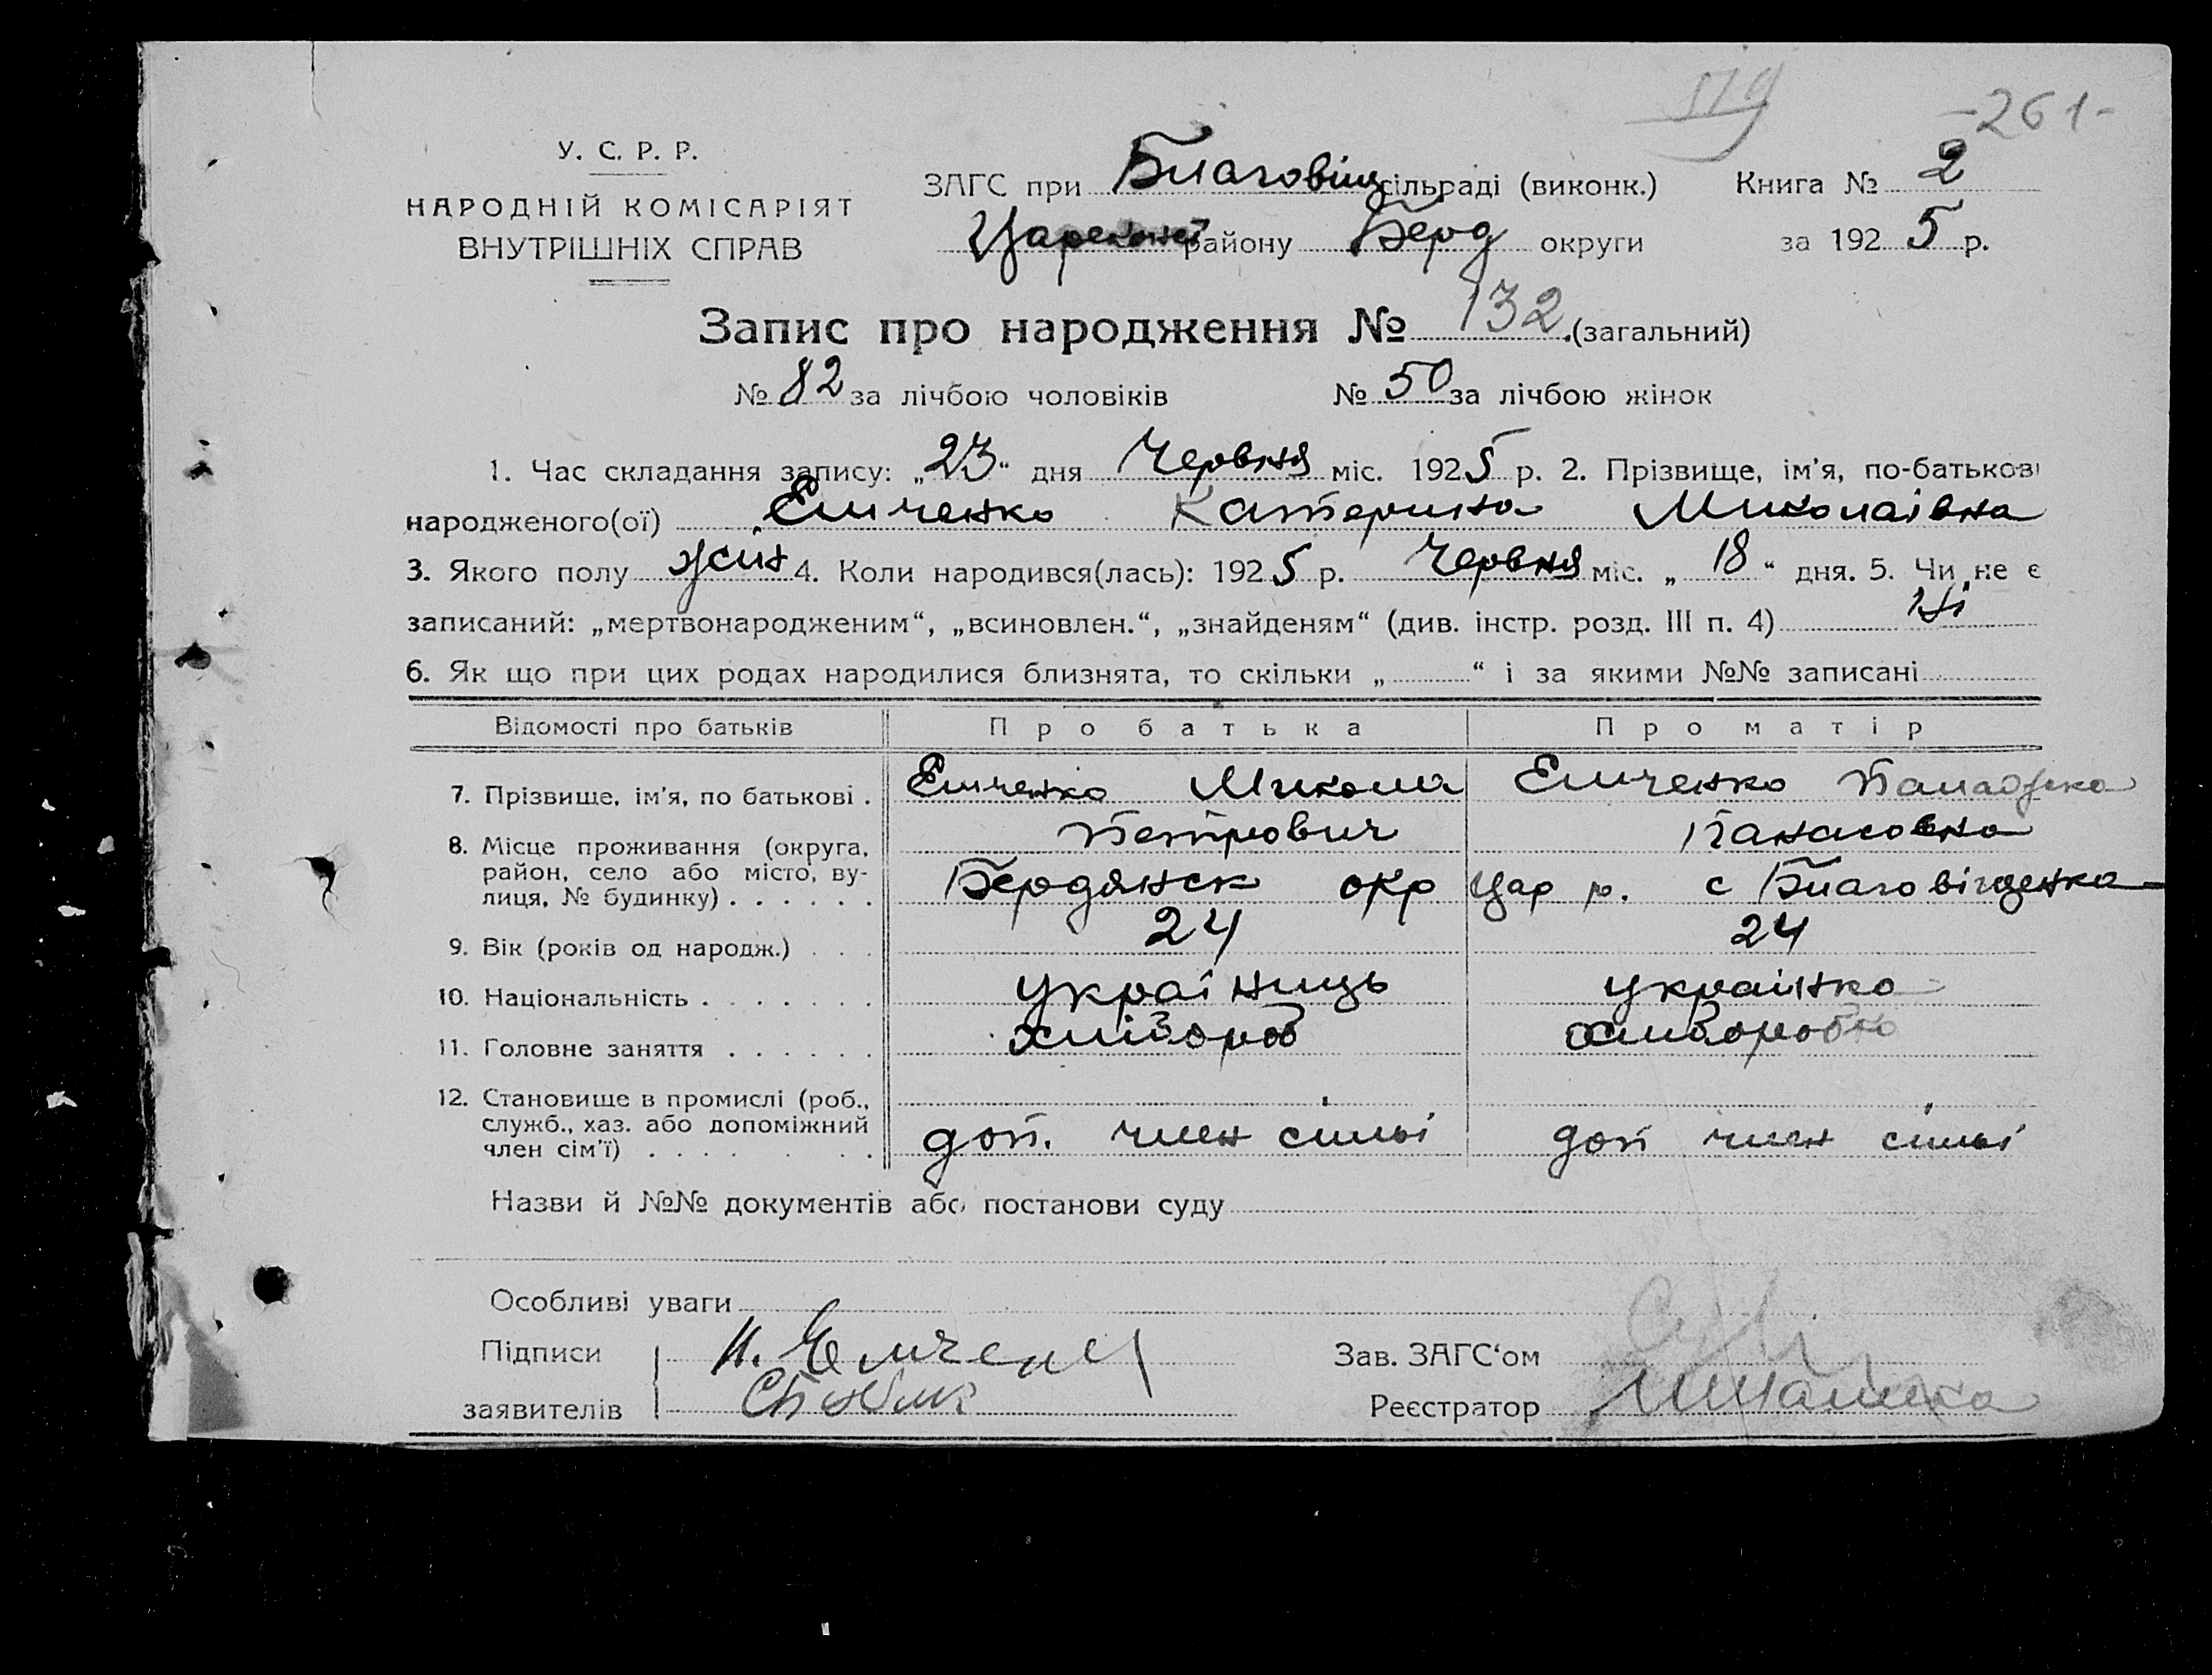 519
-261-
У. С. Р. Р.
НАРОДНІЙ КОМІСАРІЯТ
ВНУТРІШНІХ СПРАВ
ЗАГС при Благовіщ сільраді (виконк.) Книга № 2
району Берд округи за 192 5 р.
Запис про народження № 132 (загальний)
№ 82 за лічбою чоловіків № 50 за лічбою жінок
1. Час складання запису: „23“ дня Червня міс. 1925 р. 2. Прізвище, ім'я, по-батькові
народженого(ої) Емченко Катерина Миколаівна
3. Якого полу жін 4. Коли народився(лась): 1925 р. Червня міс. „18“ дня. 5. Чи не є
записаний: „мертвонародженим“, „всиновлен.“, „знайденям“ (див. інстр. розд. III п. 4) Ні
6. Як що при цих родах народилися близнята, то скільки „ “ і за якими №№ записані
Відомості про батьків Про батька Про матір
7. Прізвище, ім'я, по батькові . Емченко Микола Емченко
Петрович Панасовна
8. Місце проживання (округа, район, село або місто, ву-лиця, № будинку) . . . . . . Бердянск окр Цар р. с Благовіщенка
9. Вік (років од народж.) . . . 24 24
10. Національність . . . . . . . украінць украінка
11. Головне заняття . . . . . . хлібороб хлиборобка
12. Становище в промислі (роб., служб., хаз. або допоміжний член сім'ї) . . . . . . . доп. член сімьі доп член сімьі
Назви й №№ документів або постанови суду
Особливі уваги
Підписи
заявителів
Зав. ЗАГС'ом
Реєстратор